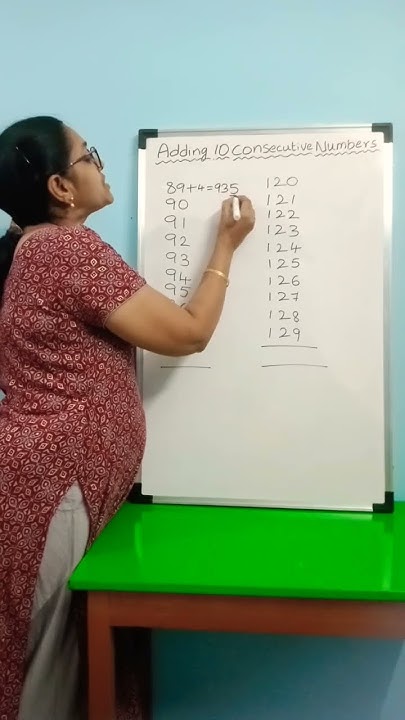 Adding 10 Consecutive Numbers
89+4=935
90
91
92
93
94
95
120
121
122
123
124
125
126
127
128
129